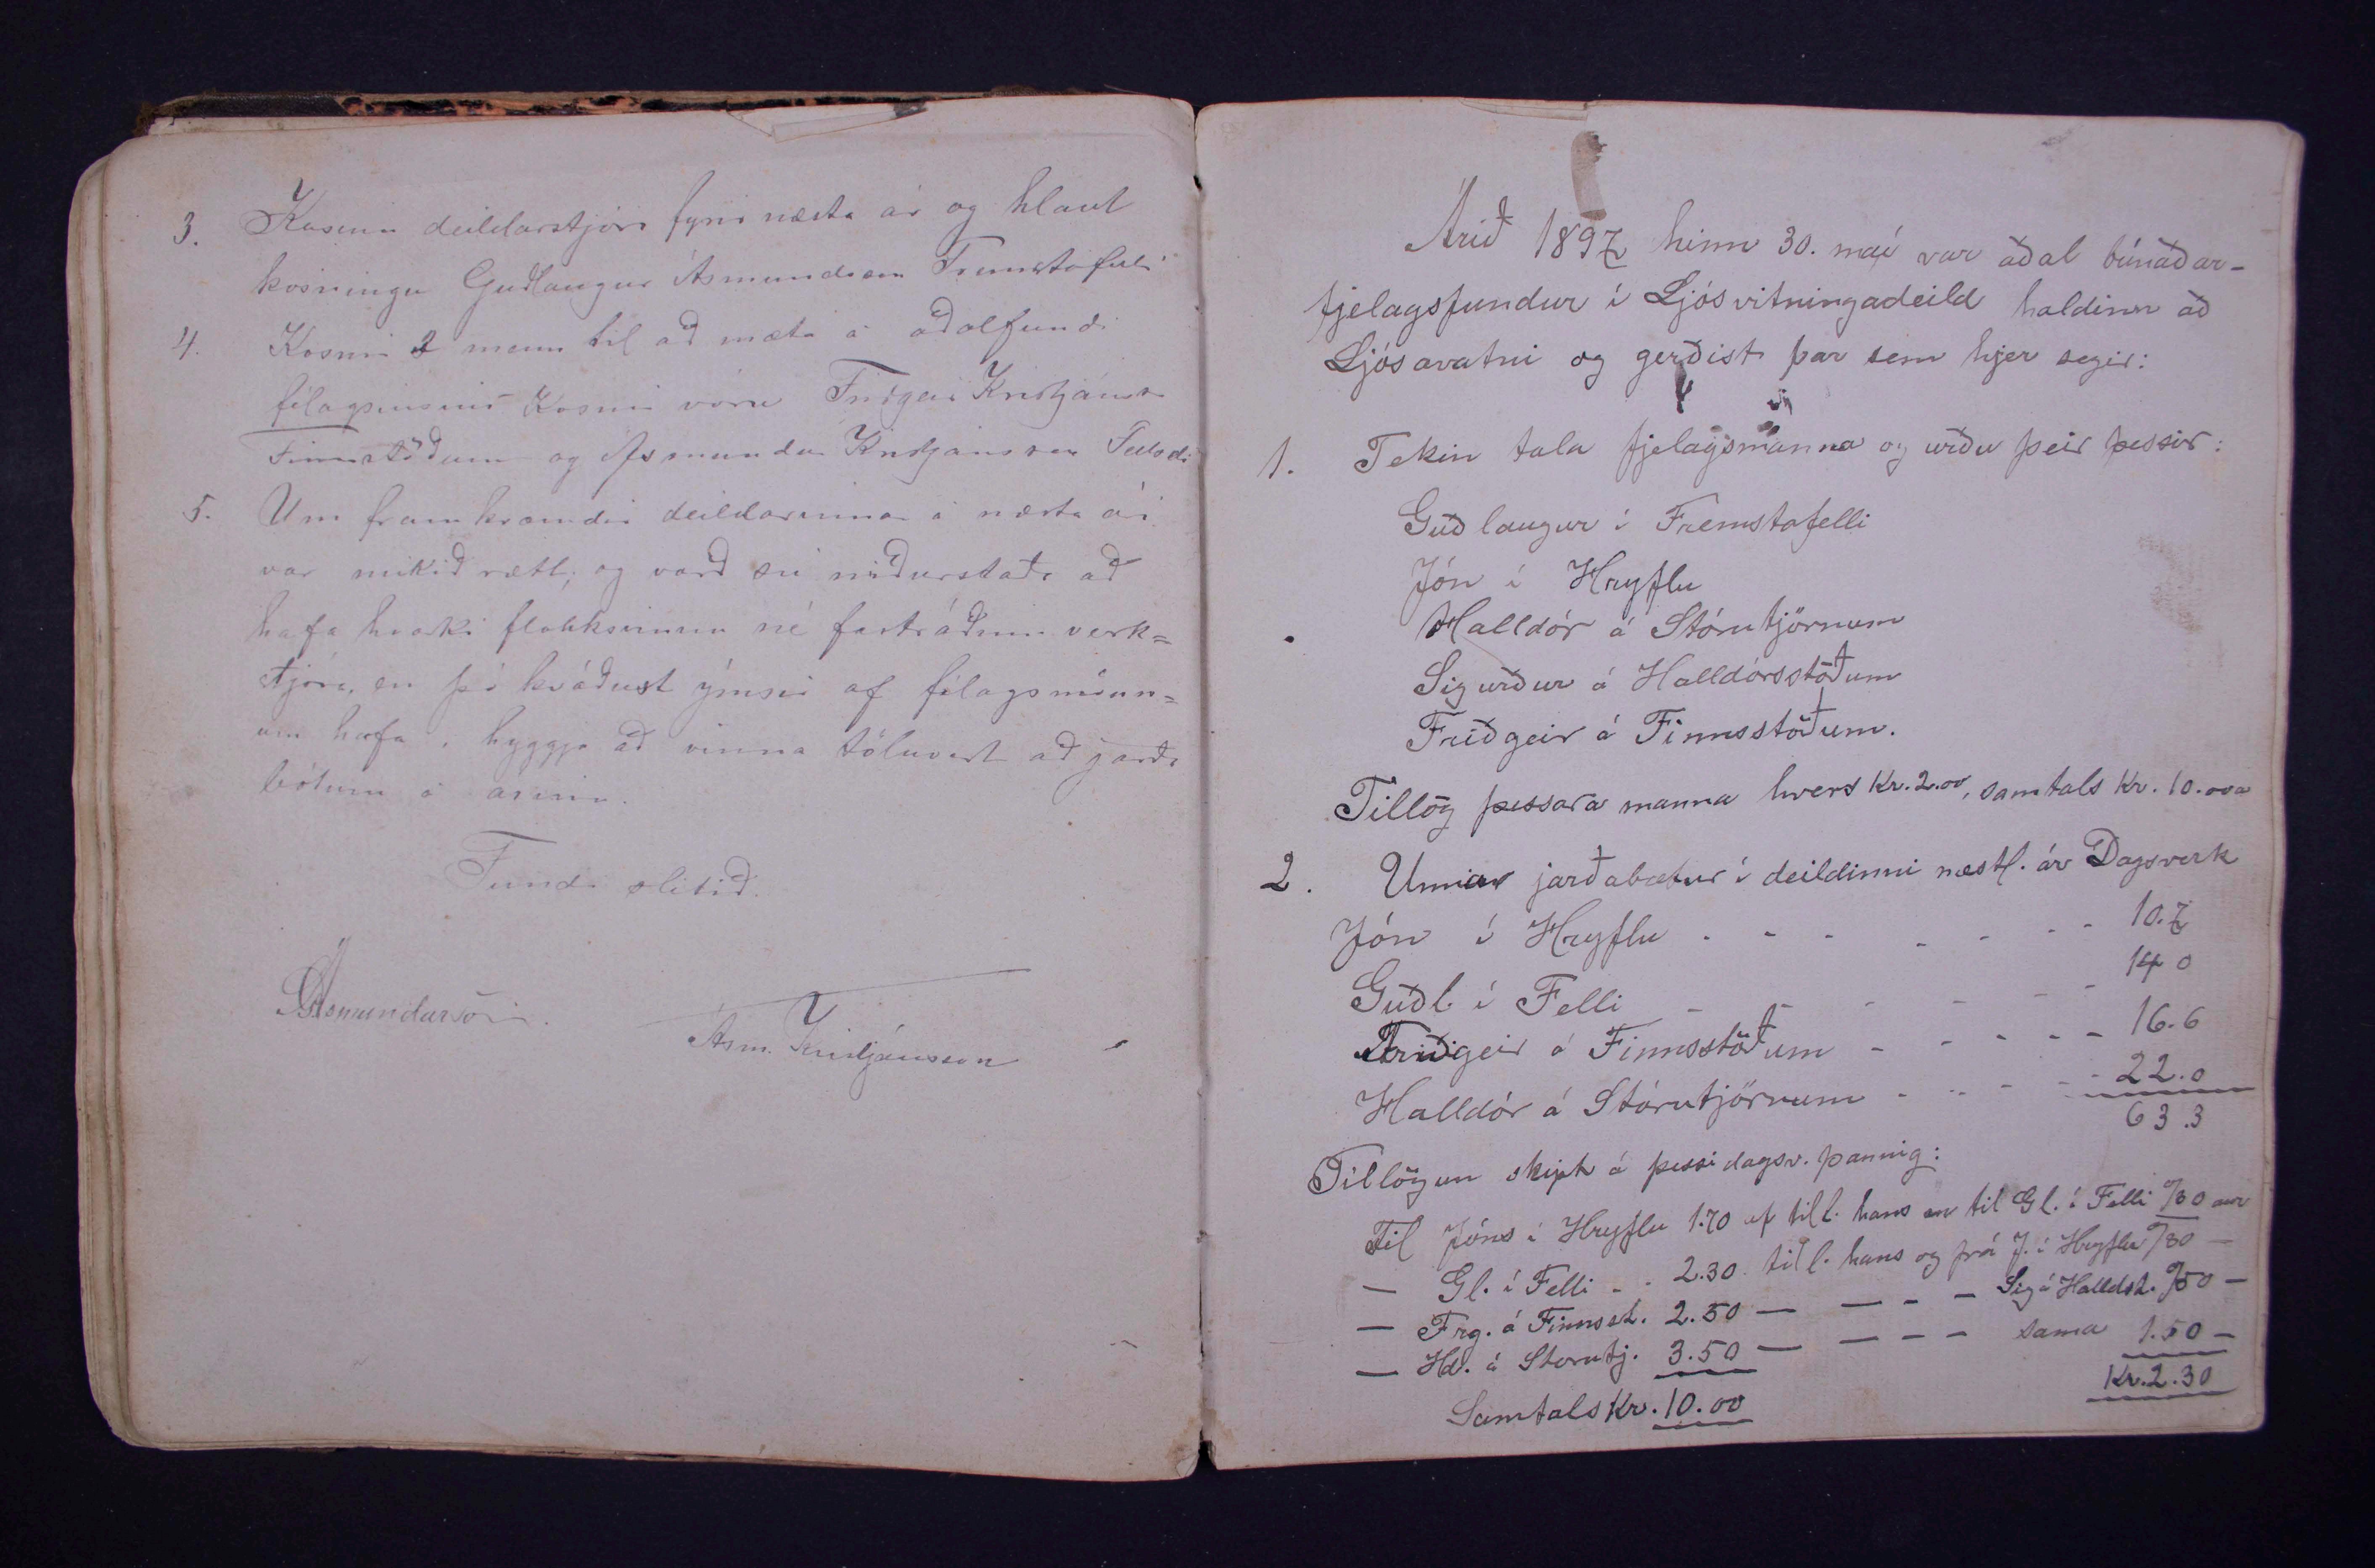 3. Kosinn deildarstjóri fyrir næsta ár og hlaut
kosningu Guðlaugur Ásmundsson Fremstafelli
4. Kosnir 2 menn til að mæta á aðalfundi
félagsinsins Kosnir vóru Friðgeir Kristjánss.
Finnstöðum og Ásmundur Kristjánsson
5. Um framkvæmdir deildarinnar á næsta ári
var mikið rætt; og varð sú niðurstaða að
hafa hvorki flokksvinnu né fastráðinn verk=
stjóra, en þó kváðust ýmsir af félagsmönn=
um hafa í hyggju að vinna töluvert að jarða
bótum á árinu.
Fundi slitið.
GÁsmundarson.
Ásm. Kristjánsson
Árið 1897 hinn 30. maí var aðal búnaðar-
fjelagsfundur í Ljósvitningadeild haldinn að
Ljósavatni og gerðist þar sem hjer segir:
1. Tekin tala fjelagsmanna og urðu þeir þessir:
Guðlaugur í Fremstafelli
Jón í Hryflu
Halldór á Stórutjörnum
Sigurður á Halldórsstöðum
Friðgeir á Finnsstöðum.
Tillög þessara manna hvers Kr. 2.00, samtals Kr. 10.00a
2. Unnar jarðabætur í deildinni næstl. ár Dagsverk
Jón í Hryflu - - - - - - - 10.7
Guðl. í Felli - - - - - - 14 0
Friðgeir á Finnsstöðum - - - - - 16.6
Halldór á Stórutjörnum - - - - - 22.0
63.3
Tillögun skipt á þessi dagsv. þannig:
Til Jóns í Hryflu 1.70 af till. hans en til Gl. í Felli 0/30 aur
— Gl. í Felli - - 2.30 till. hans og frá J. í Hryflu 0/30 —
— Frg. á Finnsst. 2.50 — — - — Sig á Halldst. 0/50 —
— Hd. á Stórutj. 3.50 — — - — sama 1.50 —
Samtals Kr. 10.00 Kr. 2.30